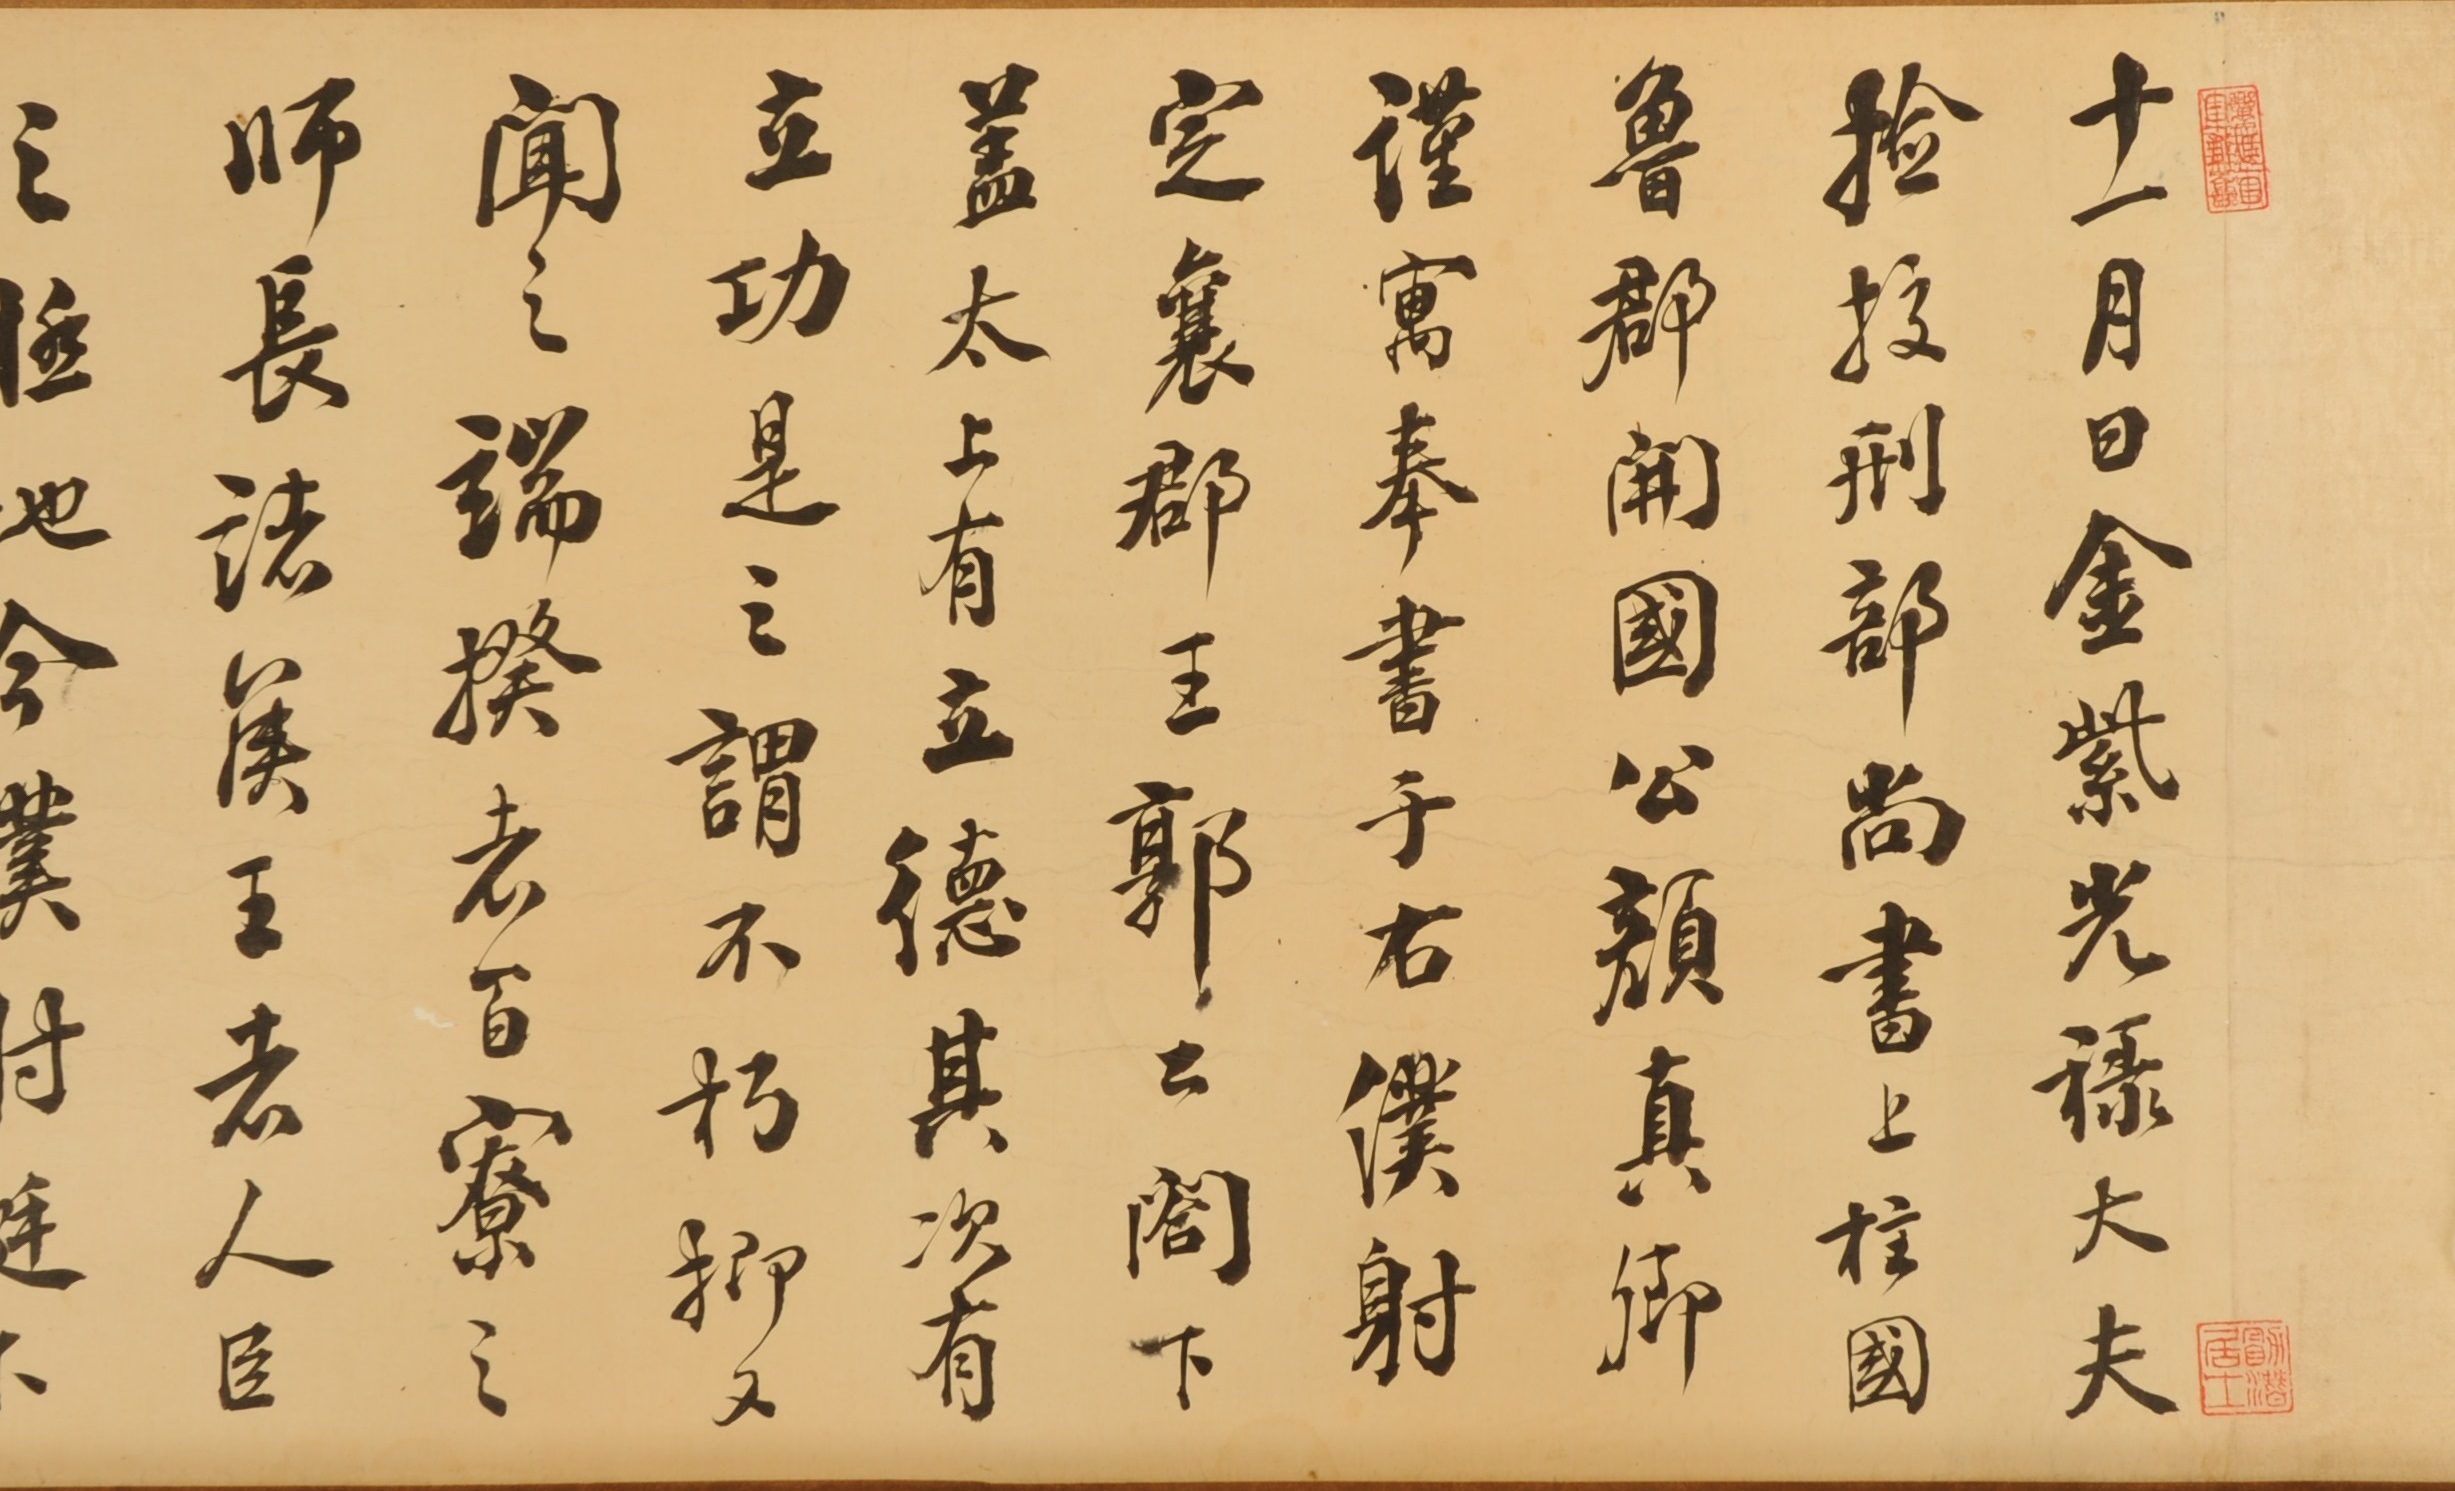 十一月日金紫光祿大夫
撿挍刑部尚書上柱國
魯郡開國公顏真卿
謹寓奉書于右僕射
定襄郡王郭公閤下
蓋太上有立德其次有
立功是之謂不朽抑又
聞之端揆者百寮之
師長諸侯王者人臣
之極地今僕射挺不